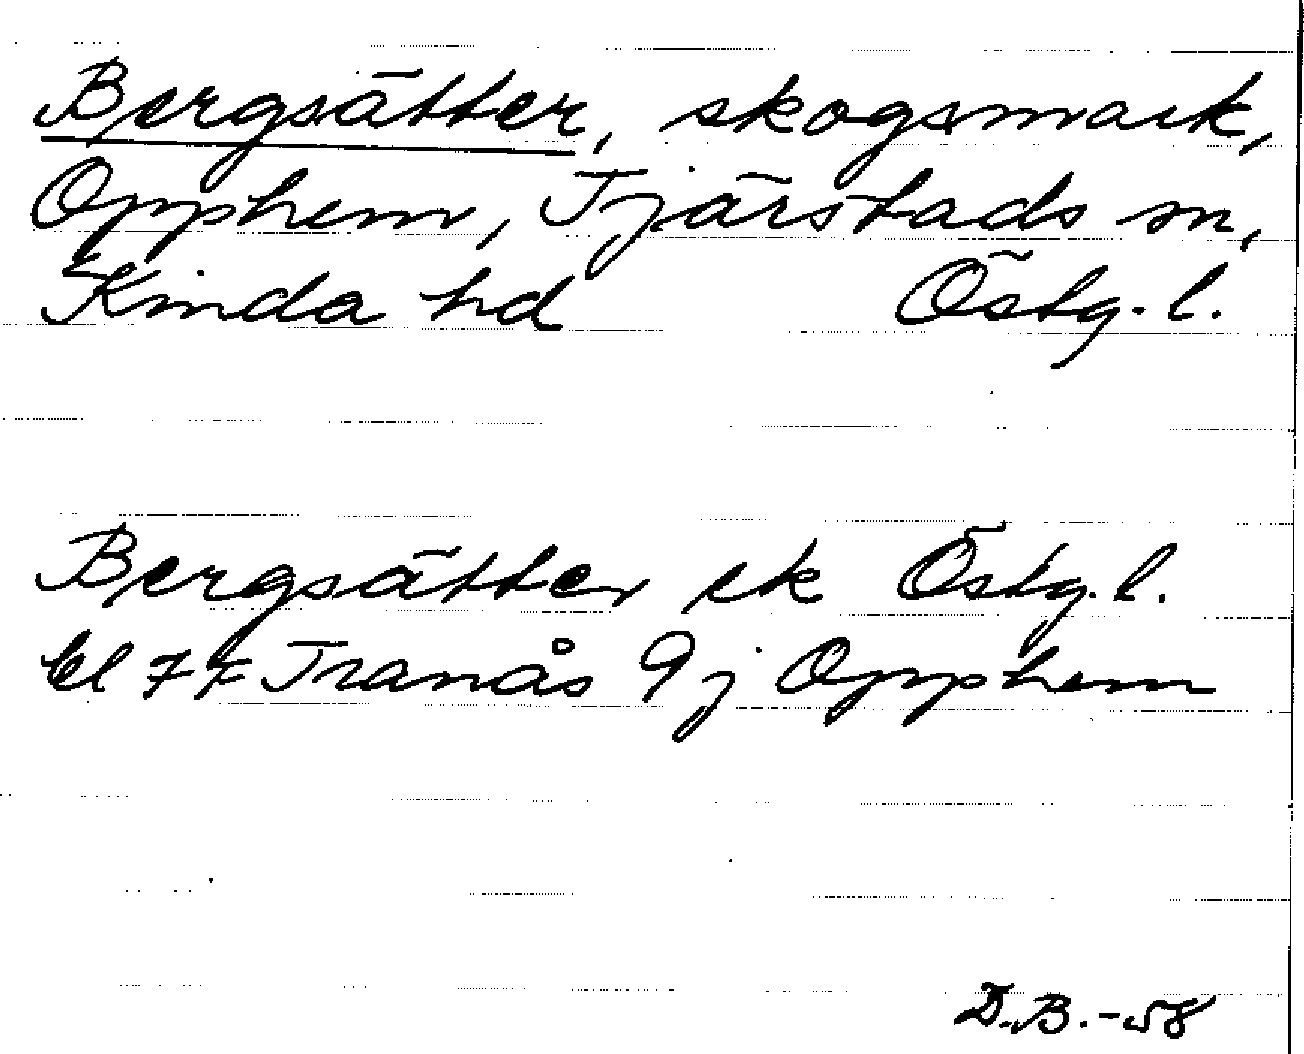 Bergsätter, skogsmark,
Opphem, Tjärstads sn,
Kinda hd Östg. l.
Bergsätter ek Östg. l.
bl 7 F Tranås 9j Opphem
D.B. -58